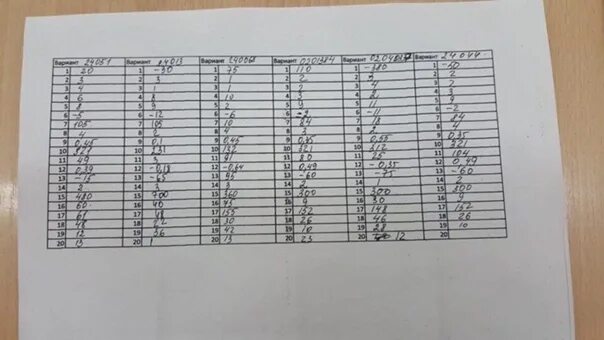 Вариант 24051 Вариант 24013 Вариант 240068 Вариант 0201384 Вариант Вариант 24044
1 20 1 -30 1 75 1 110 1 -380 1 -50
2 3 2 3 2 1 2 2 2 3 2 2
3 4 3 1 3 1 3 3 4 3
4 6 4 8 4 10 4 4 4
5 8 5 9 5 2 5 9 5 11 5 9
6 -5 6 -12 6 -6 6 -2 6 -11 6 -2
7 105 7 105 7 10 7 84 7 18 7 84
8 4 8 2 8 4 8 8 2 8 4
9 0,45 9 0,1 9 0,45 9 0,35 9 0,55 9 0,35
10 10 231 10 132 10 321 10 312 10 321
11 49 11 3 11 91 11 80 11 25 11 104
12 0,39 12 12 -0,64 12 0,49 12 -0,35 12 0,49
13 -15 13 -65 13 95 13 -60 13 -75 13 -60
14 2 14 3 14 3 14 2 14 1 14 2
15 480 15 700 15 360 15 300 15 300 15 300
16 60 16 40 16 16 9 16 30 16 9
17 17 17 155 17 152 17 148 17 152
18 48 18 18 30 18 26 18 46 18 26
19 12 19 36 19 42 19 10 19 28 19 10
20 13 20 1 20 13 20 23 20 12 20